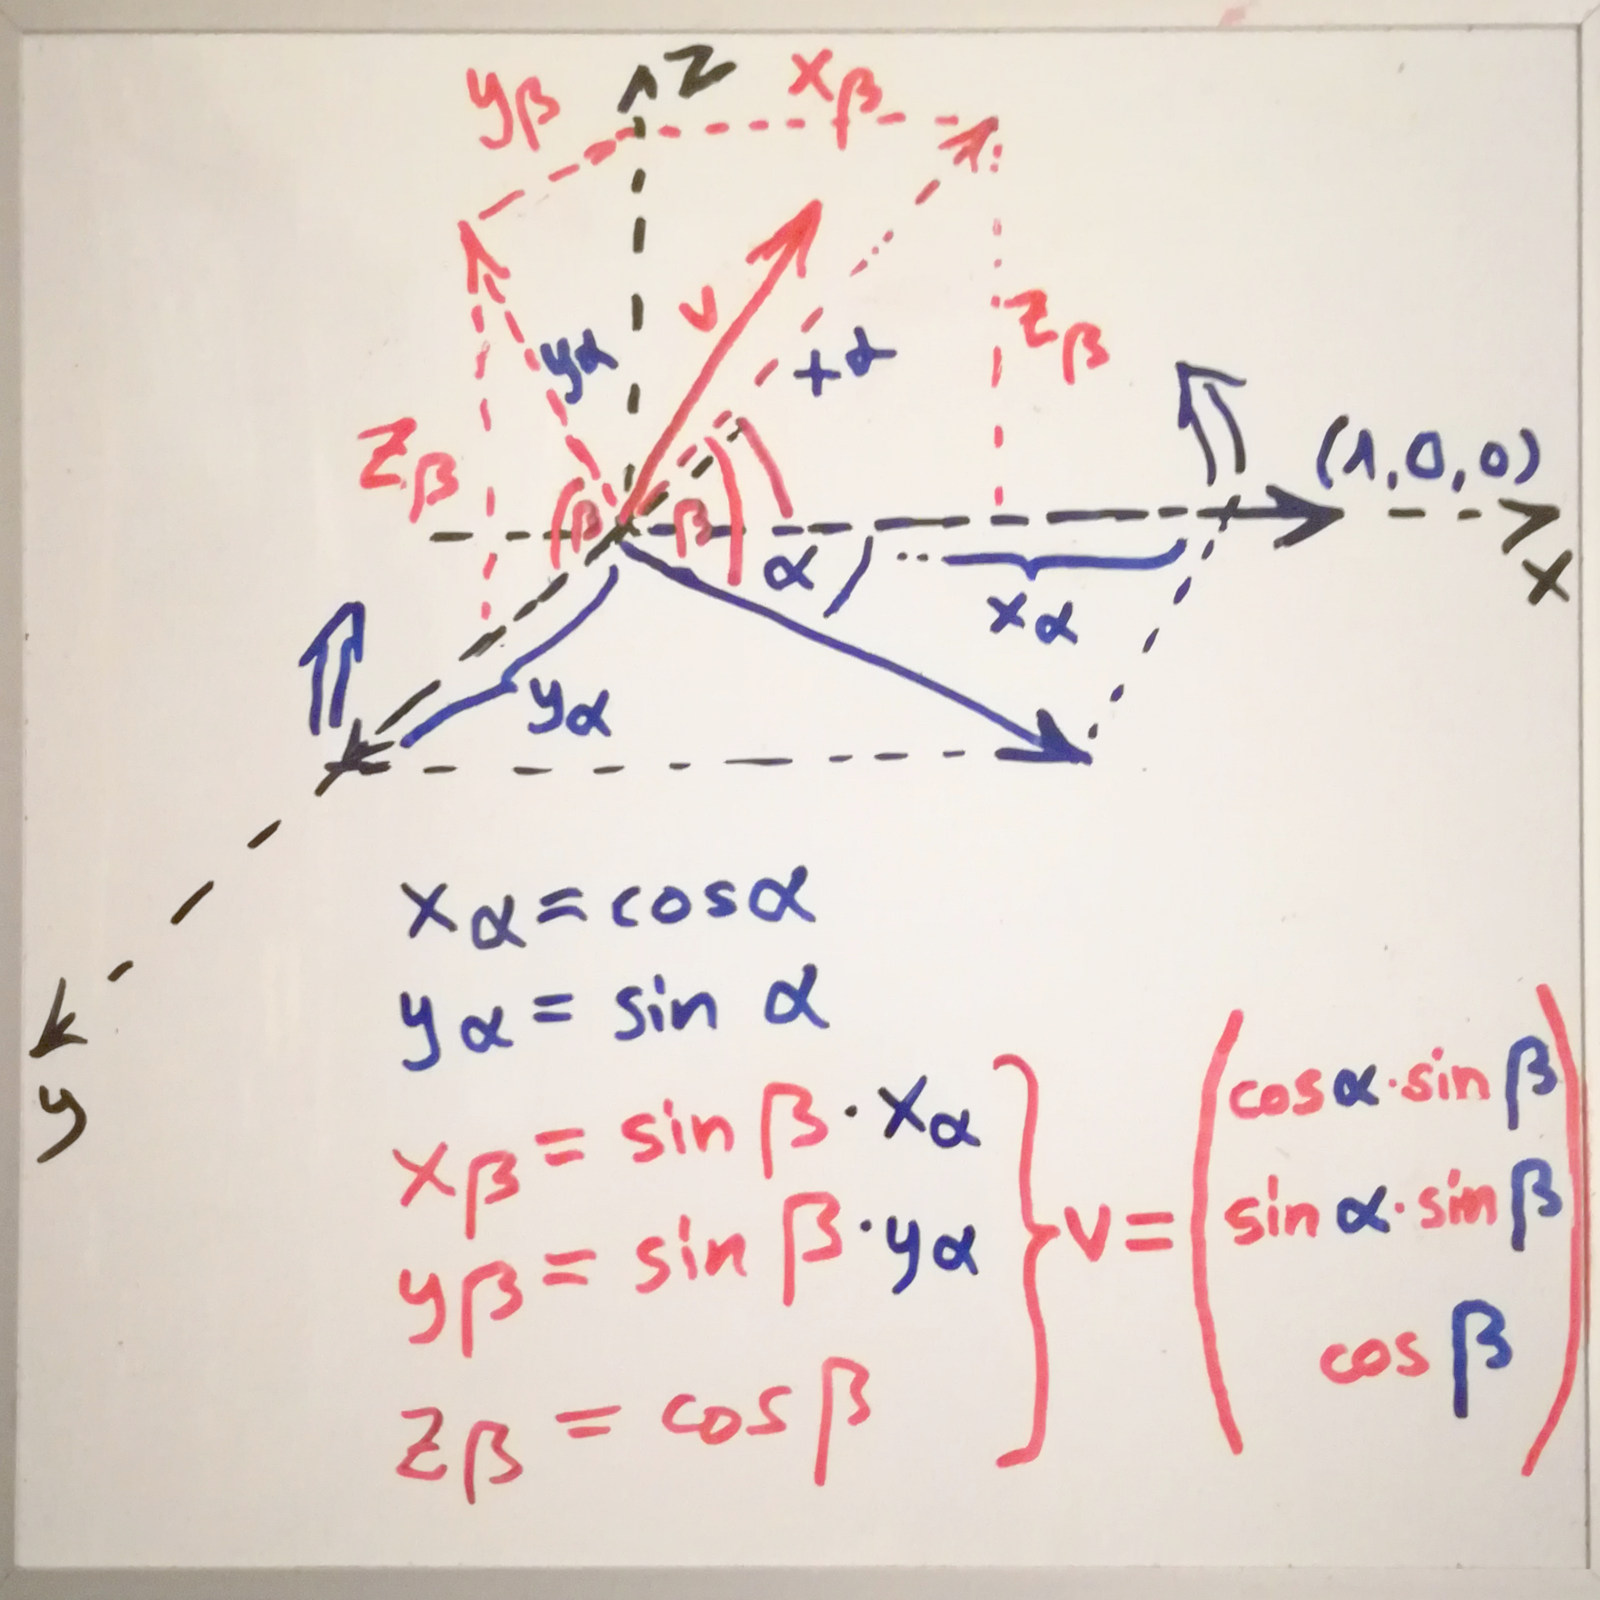 yβ
z
xβ
v
zβ
yα
xα
zβ
(1,0,0)
β
β
α
x
xα
yα
xα = cosα
yα = sin α
y
xβ = sin β · xα
yβ = sin β · yα
zβ = cos β
v =
cosα · sin β
sin α · sin β
cos β